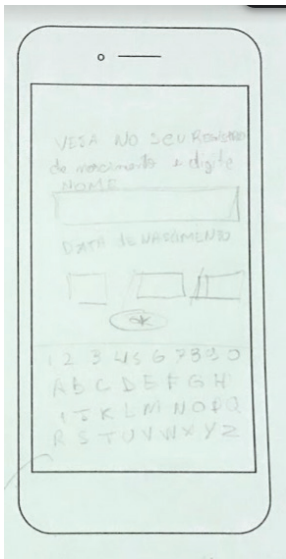 VEJA NO SEU REGISTRO
de nascimento e digite
NOME
DATA de NASCIMENTO
OK
1 2 3 4 5 6 7 8 9 0
A B C D E F G H
I J K L M N O P Q
R S T U V W X Y Z